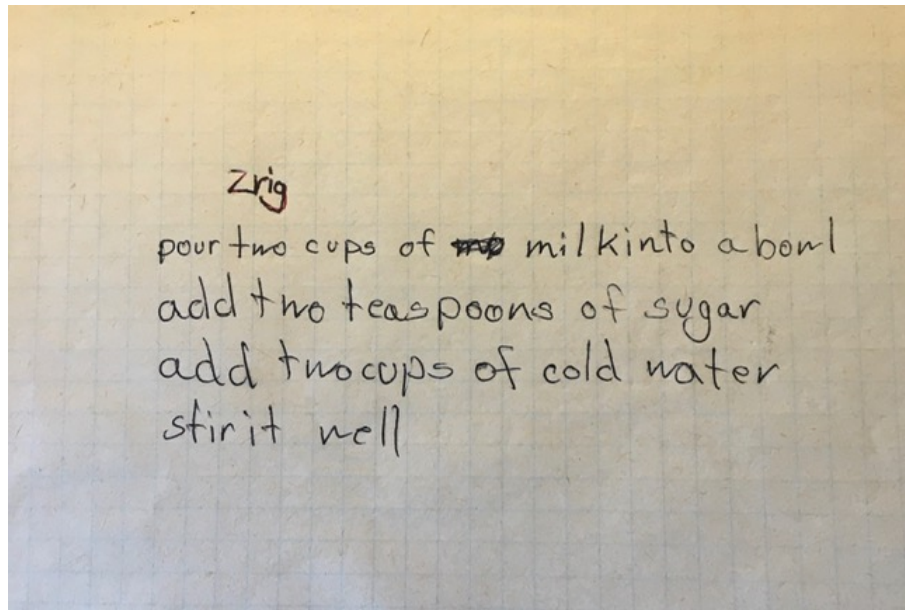 zrig
pour two cups of milk into a bowl
add two teaspoons of sugar
add two cups of cold water
stir it well